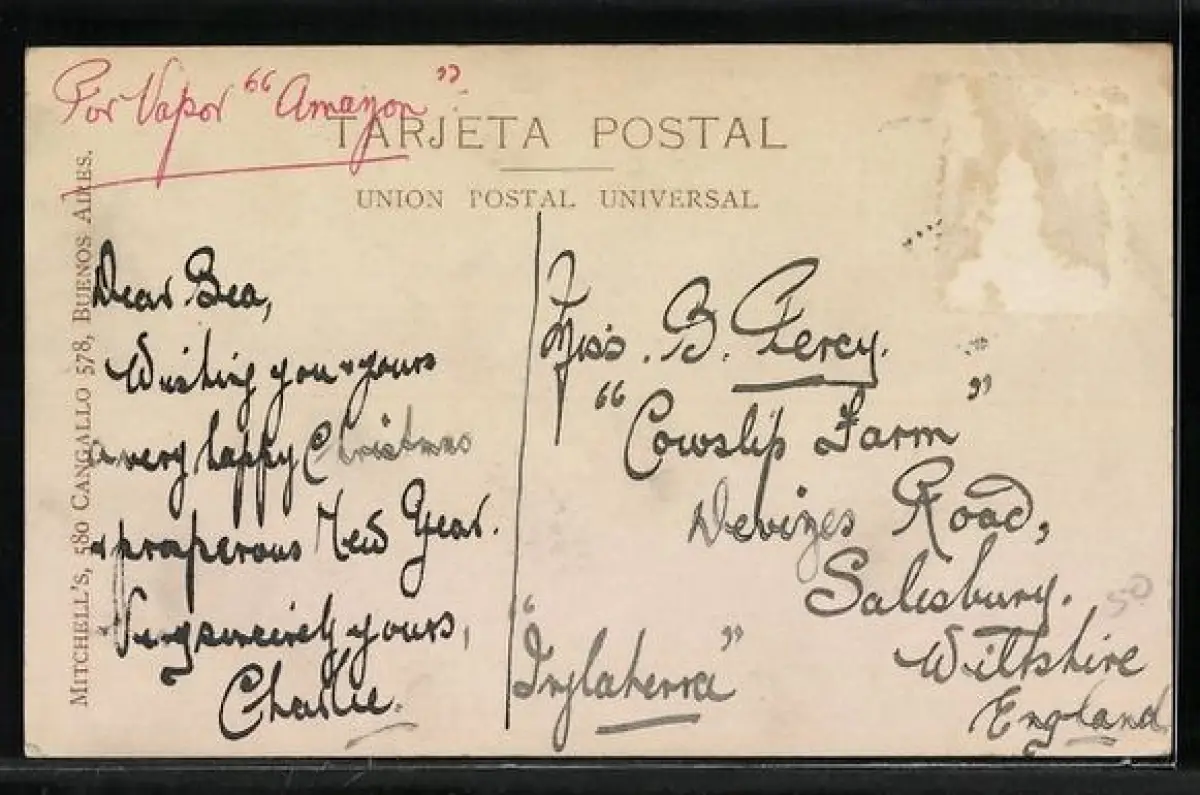 Por Vapor "Amazon"
TARJETA POSTAL
UNION POSTAL UNIVERSAL
MITCHELL'S, 580 CANGALLO 578, BUENOS AIRES.
Dear Bea,
Wishing you & yours
a very happy Christmas
& prosperous New Year.
Very sincerely yours,
Charlie.
Miss. B. Percy.
"Cowslip Farm"
Devizes Road,
Salisbury.
Wiltshire
England
"Inglaterra"
50